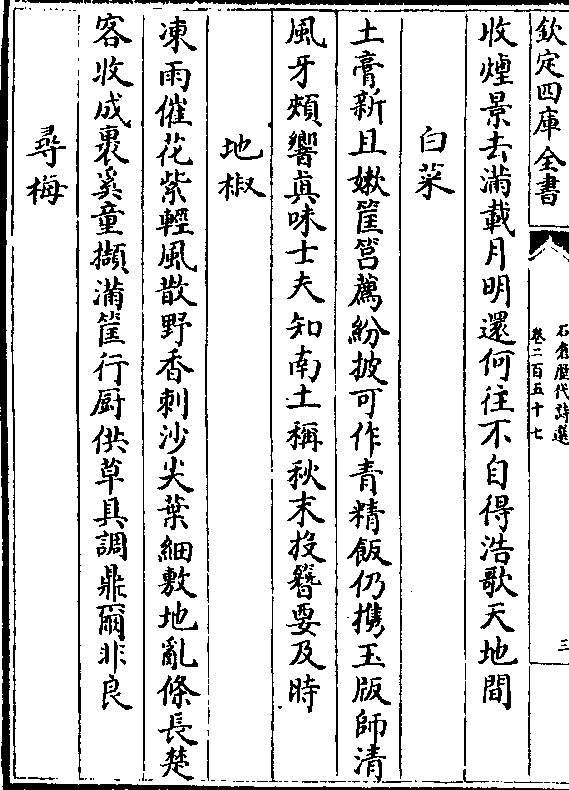 欽定四庫全書
石倉歷代詩選
卷二百五十七
三
收煙景去滿載月明還何往不自得浩歌天地間
白菜
土膏新且嫰筐筥薦紛披可作青精飯仍携玉版師清
風牙頰響真味士夫知南土稱秋末投簪要及時
地椒
凍雨催花紫輕風散野香刺沙尖葉細敷地亂條長楚
客收成裹奚童擷滿筐行厨供草具調鼎爾非良
尋梅